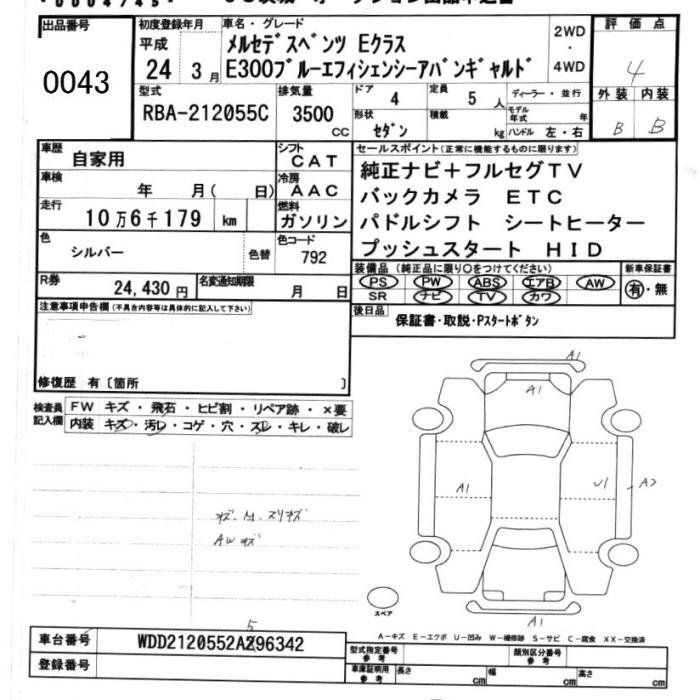 出品番号
0043
初度登録年月
平成
24 3月
車名・グレード
メルセデスベンツ Eクラス
E300ブルーエフィシェンシーアバンギャルド
2WD
・
4WD
評価点
4
外装 内装
B B
型式
RBA-212055C
排気量
3500
CC
ドア
4
定員
5 人
ディーラー・並行
形状
セダン
積載
kg
モデル年式 年
ハンドル 左・右
車歴
自家用
シフト
CAT
車検
年 月( 日)
冷房
AAC
走行
10万6千179 km
燃料
ガソリン
色
シルバー
色替
色コード
792
R券
24,430円
名変通知期限
月 日
セールスポイント(正常に機能するものに限ります)
純正ナビ+フルセグTV
バックカメラ ETC
パドルシフト シートヒーター
プッシュスタート HID
装備品 (純正品に限り○をつけてください) 新車保証書
PS PW ABS エアB AW
SR ナビ TV カワ
有・無
後日品
保証書・取説・Pスタートボタン
注意事項申告欄(不具合内容等は具体的に記入して下さい)
修復歴 有〔箇所 〕
検査員
記入欄
FW キズ・飛石・ヒビ割・リペア跡・×要
内装 キズ・汚レ・コゲ・穴・スレ・キレ・破レ
AWキズ
A1
A1
A1
U1
A2
A1
スペア
A-キズ E-エクボ U-凹み W-補修跡 S-サビ C-腐食 XX-交換済
車台番号
WDD2120552A296342
5
登録番号
型式指定番号
参考
類別区分番号
参考
車庫証明用
参考
長さ cm
幅 cm
高さ cm